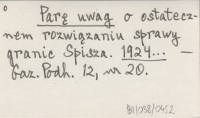 Parę uwag o ostatecz-
nem rozwiązaniu sprawy
granic Spisza. 1924... —
Gaz. Podh. 12, nr 20.